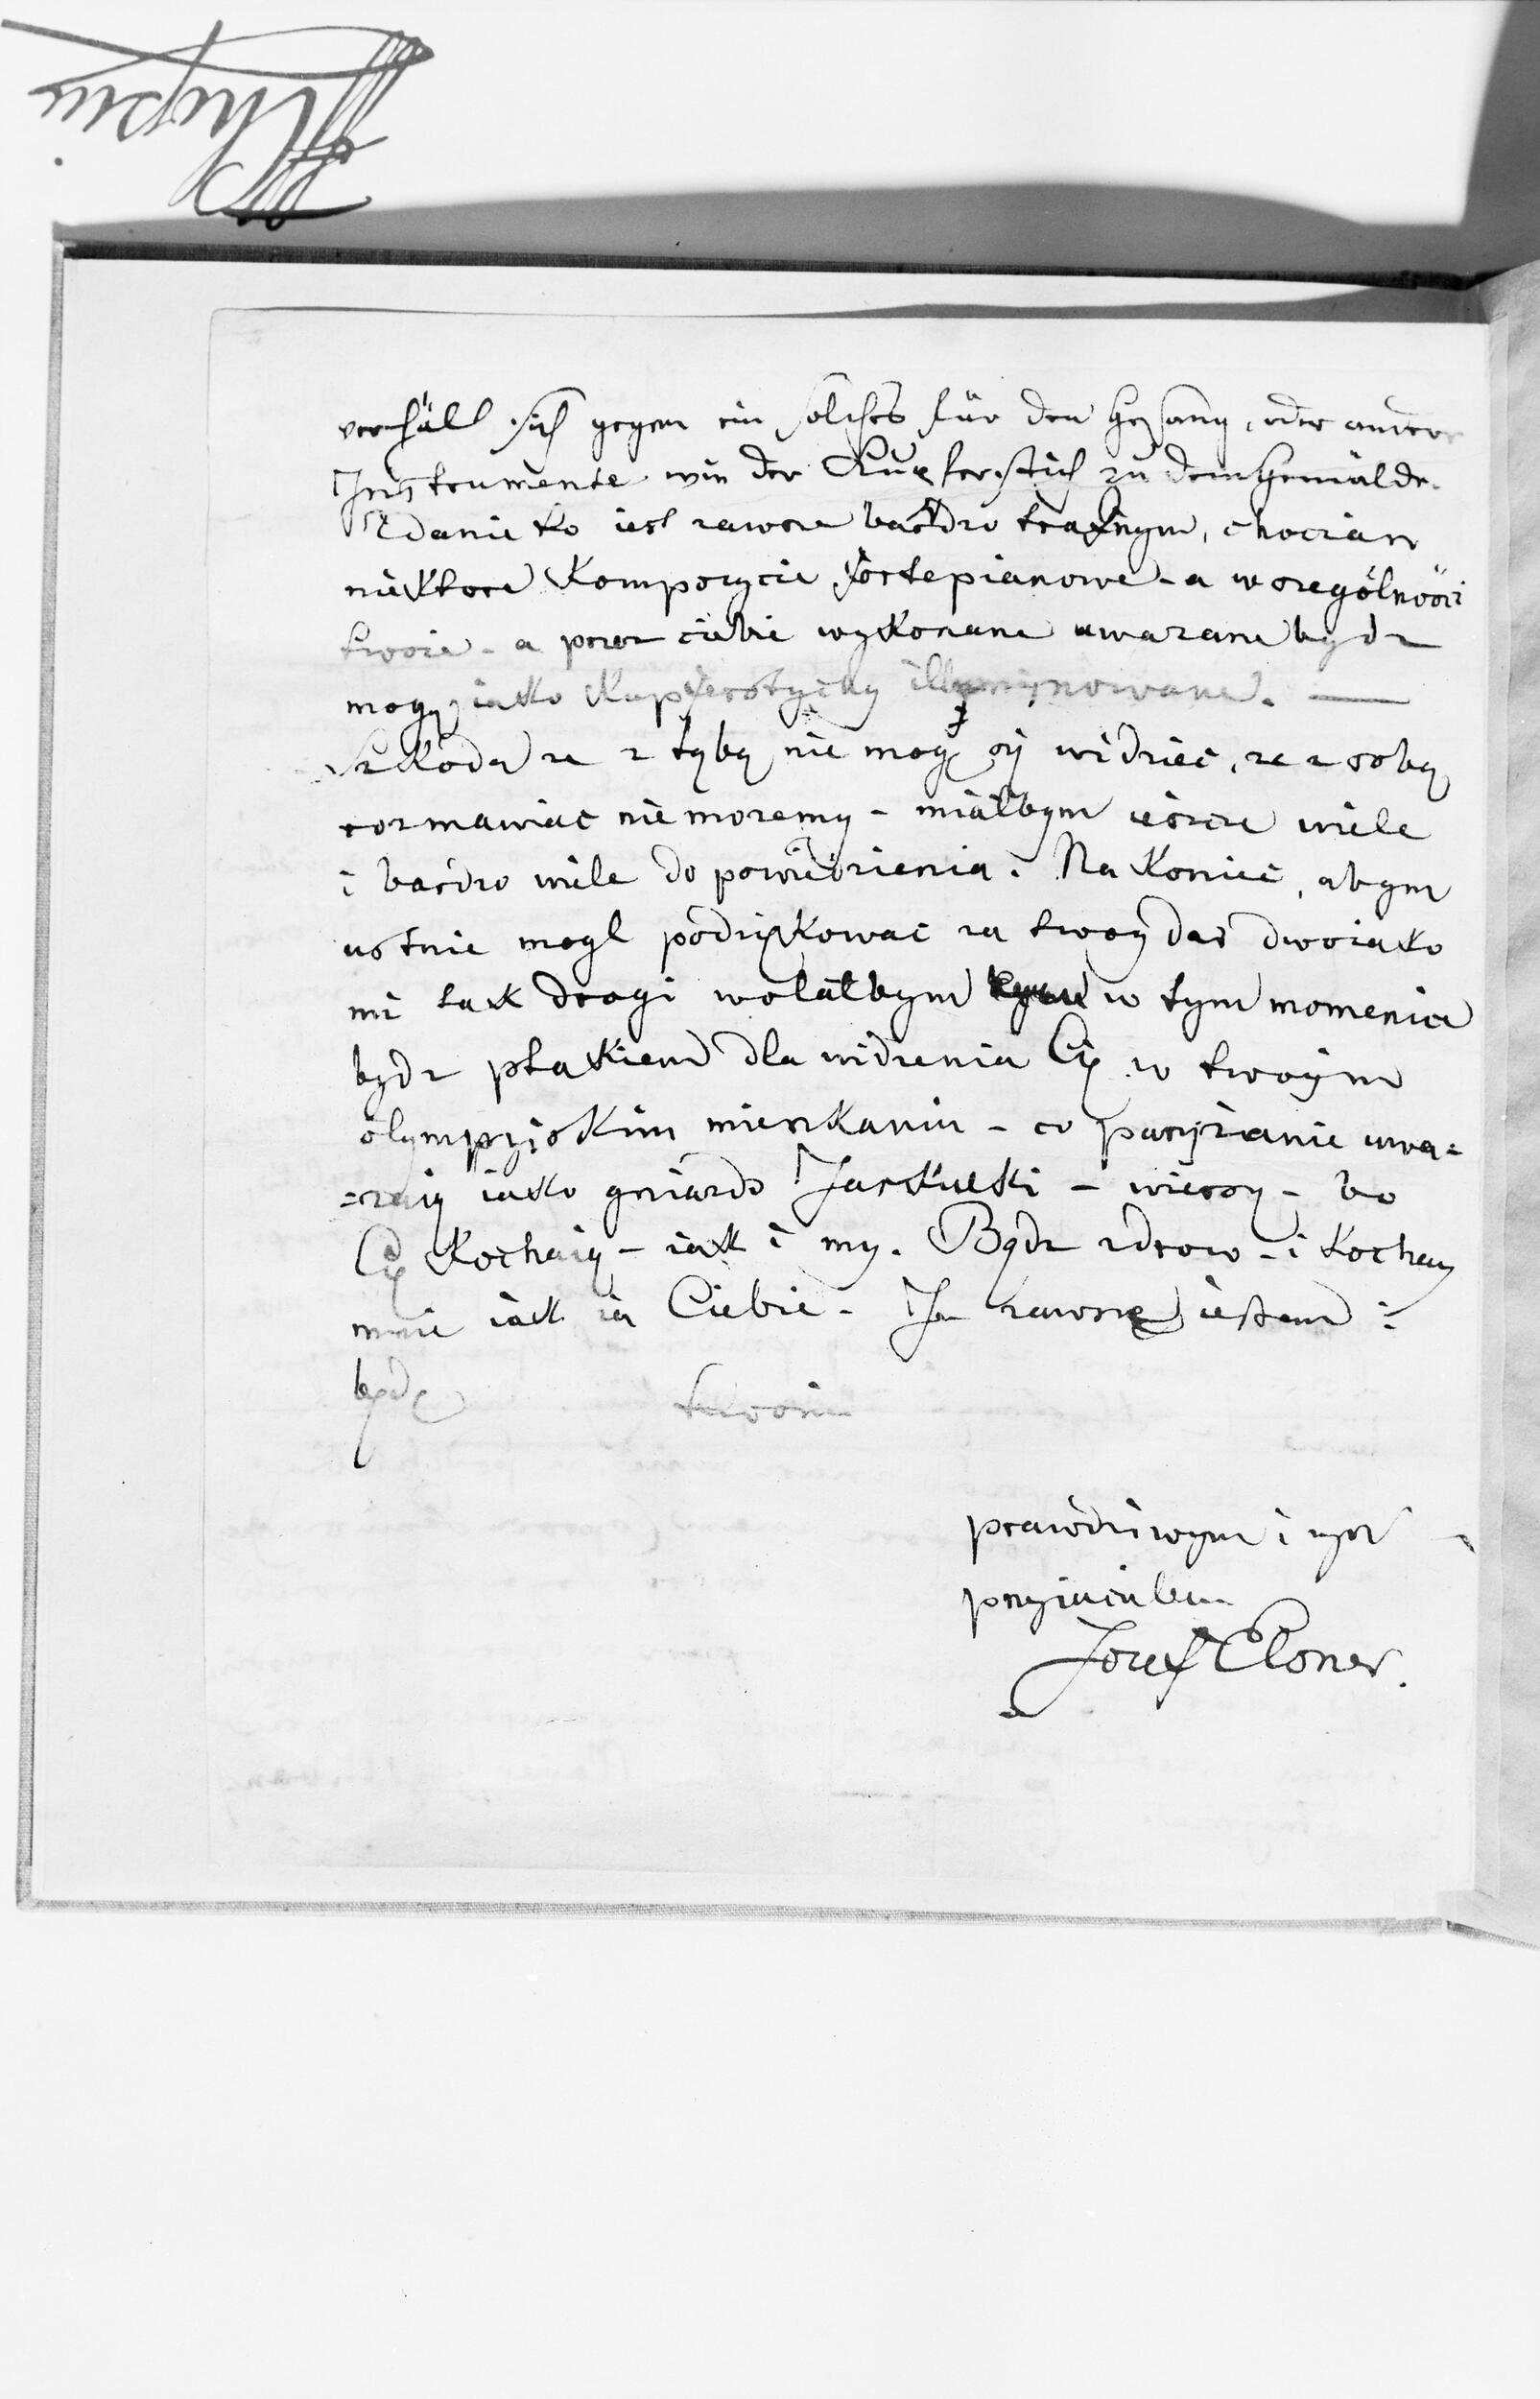 FFChopin
verhält sich gegen ein solches für den Gesang, oder andere
Instrumente wie der Kupferstich zu dem Gemälde.
Zdanie to iest zawsze bardzo trafnym, chociasz
niektore Kompozycie fortepianowe - a wszególności
twoie - a przez ciebie wykonane uwazane bydz
mogą iako Kupfersztychy illuminowane. —
Szkoda ze z tobą nie mogę się widziec, ze z sobą
rozmawiac niemozemy - miałbym ieszcze wiele
i bardzo wiele do powiedzienia. Na Koniec, abym
ustnie mogl podziękowac za twoy dar dwoiako
mi tak drogi wolałbym w tym momencie
bydz ptakiem dla widzenia Cię w twoim
olympijskim mieszkaniu - co paryzanie uwa=
=zaią iako gniazdo Jaskułki - wierzę - bo
Cię Kochaią - iak i my. Bądz zdrow - i Kochay
mnie iak ia Ciebie - Ja zawsze iestem i
będę twoim
prawdziwym i
przyiacielem
Jozef Elsner.